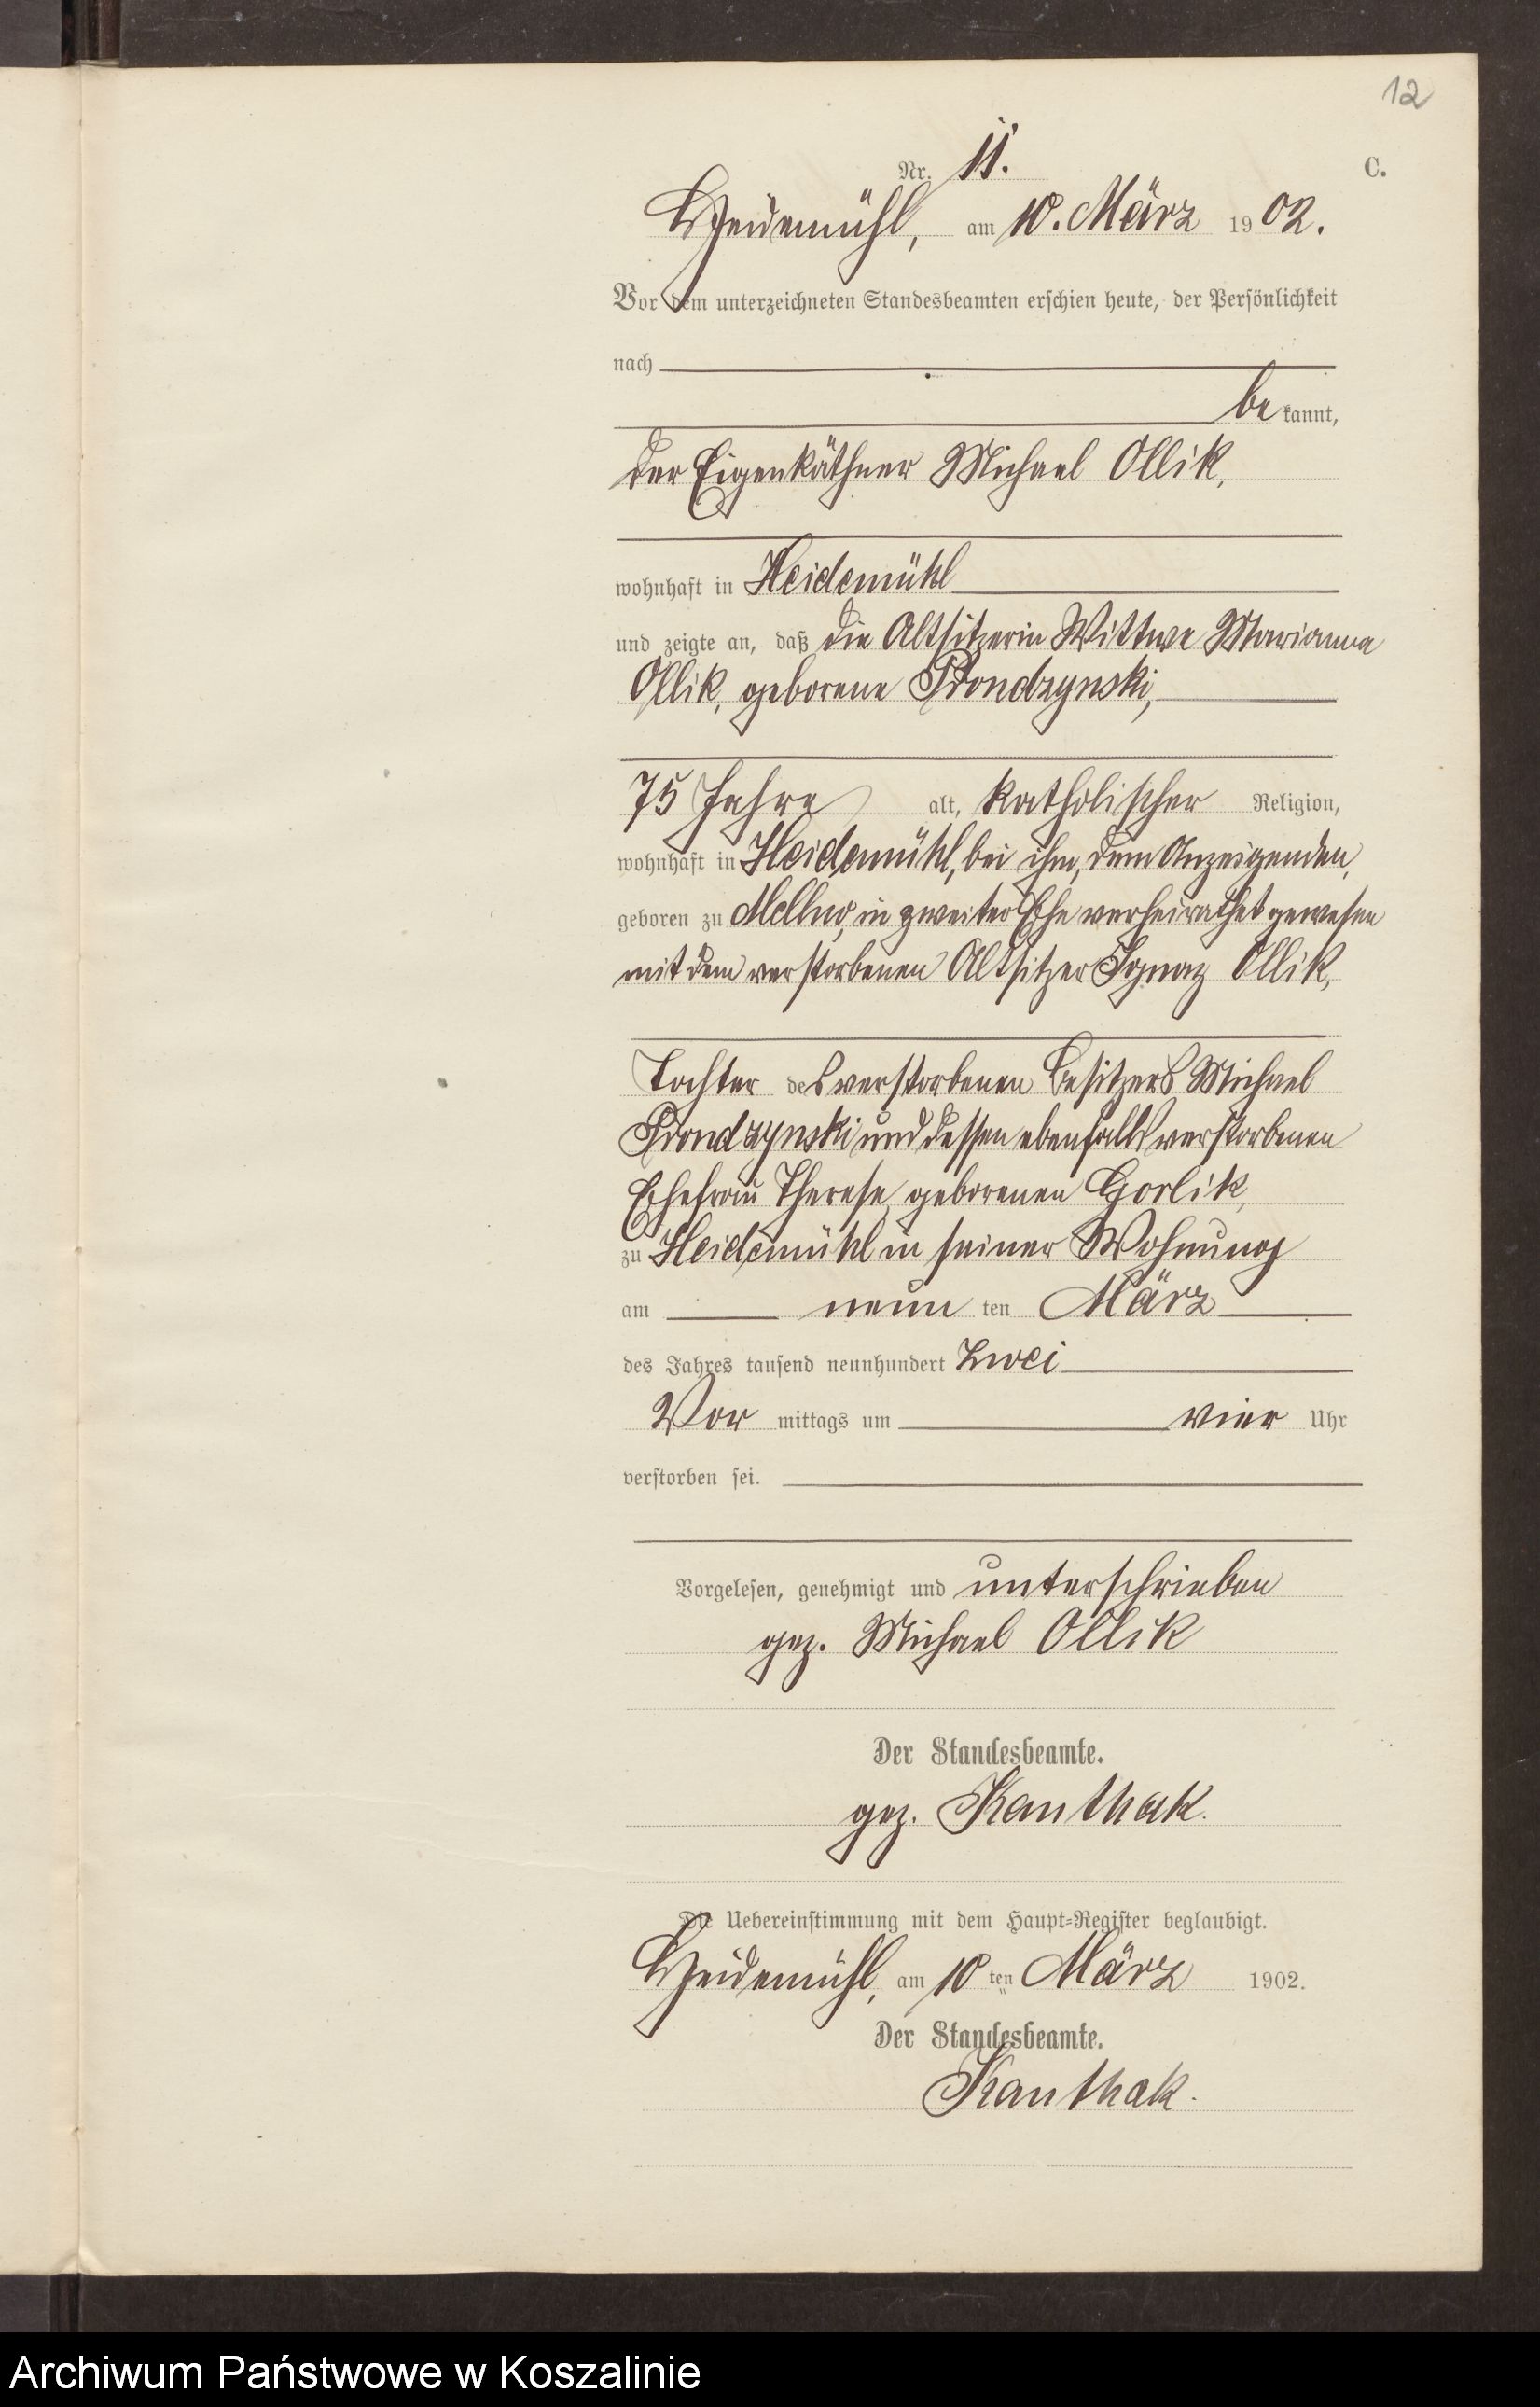 12
Nr. 11.
C.
Heidemühl, am 10. März 1902.
Vor dem unterzeichneten Standesbeamten erschien heute, der Persönlichkeit
nach
bekannt,
der Eigenkäthner Michael Ollik,
wohnhaft in Heidemühl
und zeigte an, daß die Altsitzerin Wittwe Marianna
Ollik, geborene Prondzynski,
75 Jahre alt, katholischer Religion,
wohnhaft in Heidemühl, bei ihm, dem Anzeigenden,
geboren zu Mellno, in zweiter Ehe verheirathet gewesen
mit dem verstorbenen Altsitzer Ignaz Ollik,
Tochter des verstorbenen Besitzers Michael
Prondzynski und dessen ebenfalls verstorbenen
Ehefrau Therese, geborenen Gorlik,
zu Heidemühl in seiner Wohnung
am neunten März
des Jahres tausend neunhundert zwei
Vormittags um vier Uhr
verstorben sei.
Vorgelesen, genehmigt und unterschrieben
gez. Michael Ollik
Der Standesbeamte.
gez. Kanthak.
Die Uebereinstimmung mit dem Haupt-Register beglaubigt.
Heidemühl, am 10ten März 1902.
Der Standesbeamte.
Kanthak.
Archiwum Państwowe w Koszalinie